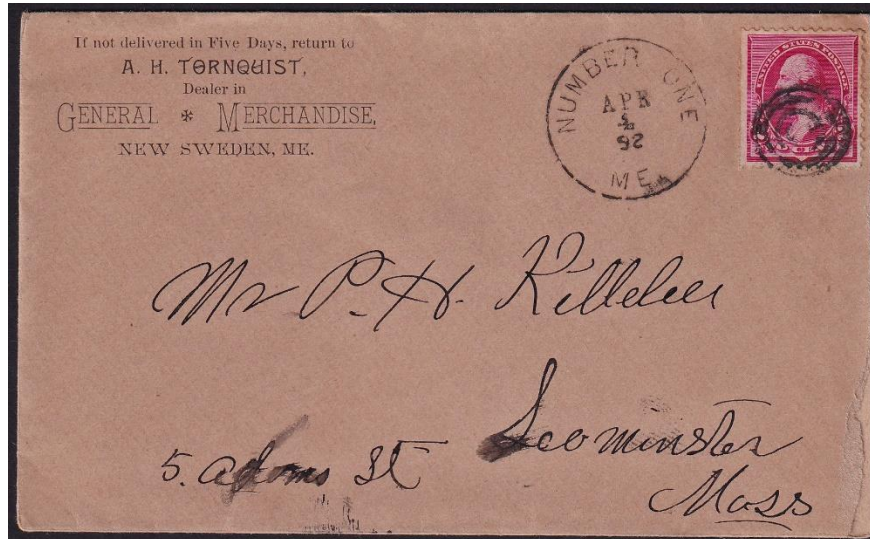 If not delivered in Five Days, return to
A. H. TORNQUIST,
Dealer in
GENERAL * MERCHANDISE,
NEW SWEDEN, ME.
NUMBER ONE
APR
92
ME.
UNITED STATES POSTAGE
Mr P. H. Killelea
Leominster
5. Adams St
Mass